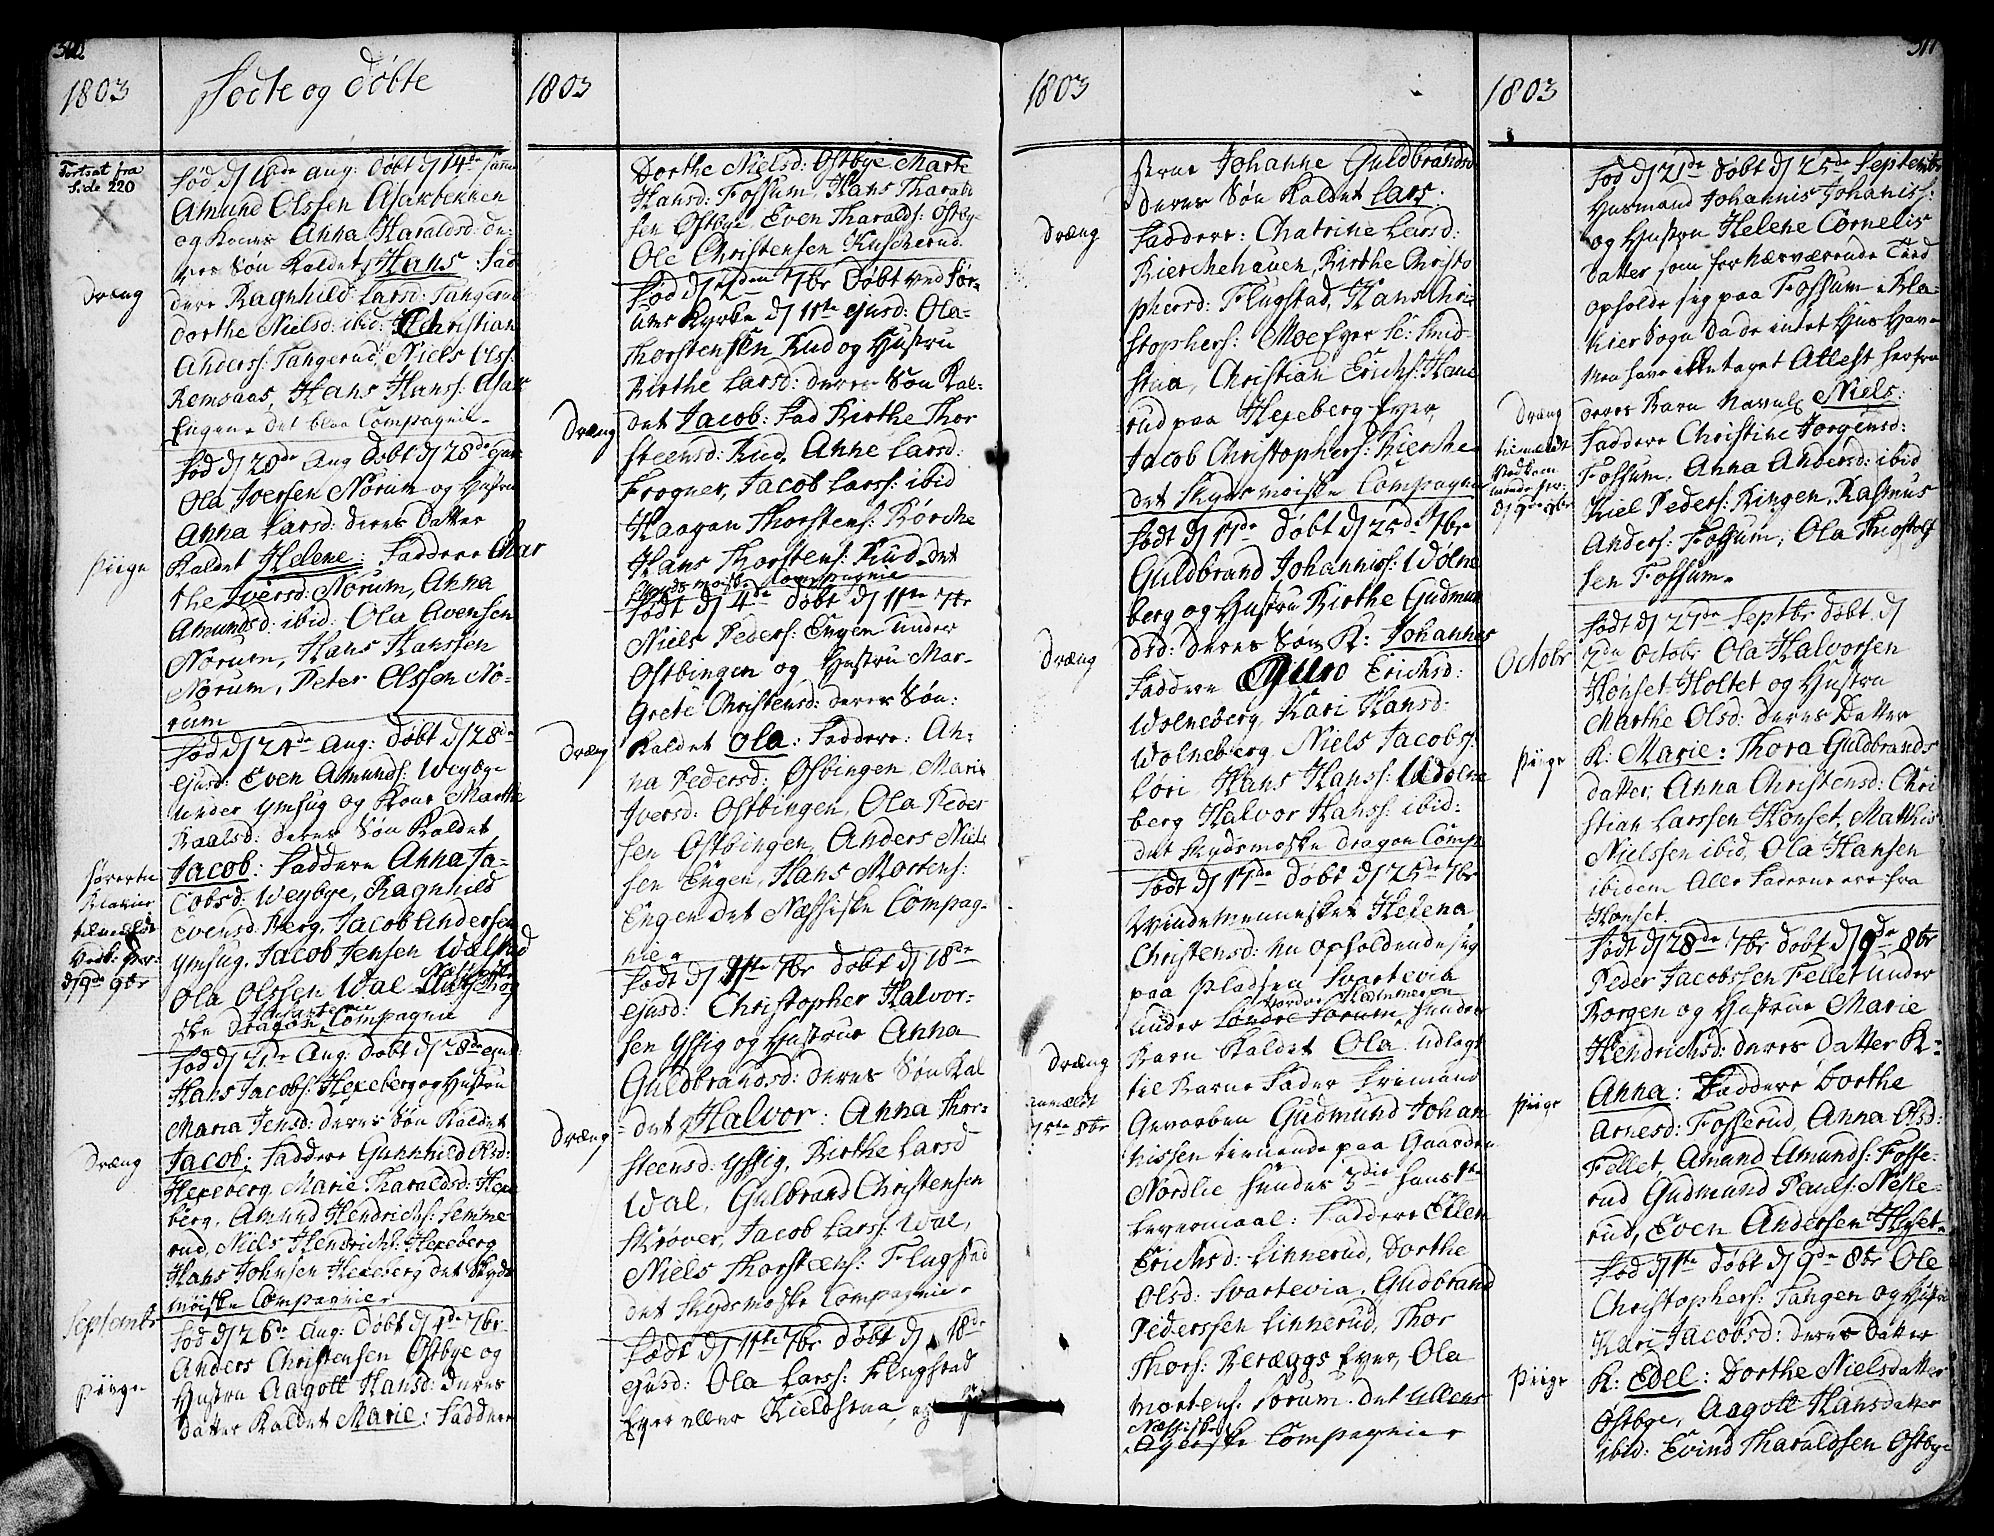 1803
Fødte og Døbte
Fortsat fra
Side 220
Dræng
Fød d 16de Aug: Døbt d 14de samme
Amund Olssen Asakbekken
og Kone Anna Haraldsd: de-
res Søn Kaldet Hans: Fad
dere Ragnhild Larsd: Tangerud
Dorthe Nielsd: ibid: Christian
Anderss: Tangerud: Niels Olss:
Remsaas, Hans Hanss: Asak
Engen det blaa Compagnie
Piige
Fød d 20de Aug Døbt d 28de ejus
Ola Iversen Norum og Hustru
Anna Larsd: deres Datter
Kaldet Helene: Faddere Mar
the Iversd: Norum, Anna
Amundsd: ibid: Ola Evensen
Norum, Hans Hanssen
Norum, Peter Olssen No-
rum
Fød d 24de Aug: Døbt d 28de
Ejusd: Even Amunds: Weybye
under Ymsug og Kone Marthe
Raalsd: deres Søn Kaldet
Jacob: Faddere Anna Ja-
cobsd: Weybye, Ragnhild
Evensd: Berg, Jacob Andersen
Ymsug, Jacob Jensen Walstad
Ola Olssen Wal
ske Dragon Compagnie
Dræng
Fød d 21de Aug: Døbt d 28de ejusd
Hans Jacobs: Hexeberg og Hustru
Maria Jensd: deres Søn Kaldet
Jacob: Faddere Gunnhild Olsd:
Hexeberg, Marie Tharaldsd: Hexe
berg, Amund Hendrichs: Lemme
rud, Niels Hendrichs: Hexeberg
Hans Johnsen Hexeberg det Skyds
møiske Compagnie
Septembr
Piige
Fød d 26de Aug: Døbt d 4de 7br
Anders Christensen Østbye og
Hustru Aagott Hansd: deres
Datter Kaldet Marie: Faddere
1803
Dorthe Nielsd: Østbye Marte
Hansd: Fossum, Hans Tharald
sen Østbye, Even Tharalds: Østbye
Ole Christensen Kuscherud
Dræng
Fød d 2den 7br Døbt ved Sør-
ums Kyrke d 11te ejusd: Ola-
Thorstensen Rud og Hustru
Birthe Larsd: deres Søn Kal-
det Jacob: Fad Birthe Thor
steensd: Rud, Anne Larsd:
Frogner, Jacob Larss: ibid
Haagan Thorstens: Børche
Hans Thorstens: Rud det
Dræng
Født d 4de Døbt d 11te 7br
Niels Peders: Engen under
Østbingen og Hustru Mar-
grete Christensd: deres Søn:
Kaldet Ola: Faddere: An-
na Pedersd: Østbingen, Marie
Iversd: Østbingen, Ola Peder
sen Østbingen, Anders Niel
sen Engen, Hans Mortens:
Engen det Næssiske Compag-
nie
Dræng
Født d 11te 7br Døbt d 18de
Ejusd: Christopher Halvor-
sen Yssig og Hustrue Anna
Guldbrandsd: deres Søn Kal
det Halvor: Anna Thor-
steensd: Yssig, Birthe Larsd
Wal, Gulbrand Christensen
Skrøver, Jacob Larss: Wal,
Niels Thorsteens: Flugstad
det Skydsmoske Compagnie
Født d 11te 7br Døbt d 18de
Ejusd: Ola Larss: Flugstad
Eyer eller Kieldstua
1803
Dræng
Johanne Guldbrandsd
deres Søn Kaldet Lars
Faddere: Chatrine Larsd:
Kierchehauen, Birthe Christo
phersd: Flugstad, Hans Chri-
stophers: Moe Eyer
stua, Christian Erichs: Hane
rud paa Hexeberg Eyer,
Jacob Christophers: Kierche
det Skydsmoiske Compagnie
Dræng
Født d 17de Døbt d 25de 7br
Guldbrand Johanniss: Wolne
berg og Hustru Birthe Gudmun
dsd: deres Søn K: Johannes
Faddere Erichsd:
Wolneberg, Kari Hansd:
Wolneberg, Niels Jacobs:
Løri, Hans Hanss: Wolne
berg, Halvor Hanss: ibid:
det Skydsmoske Dragon Comp
Dræng
Født d 17de Døbt d 26de 7br
Qvindemennesket Helena
Christensd: nu opholdende sig
paa Pladsen Svartevia
under Søndre Sørum, hendes
Barn Kaldet Ola udlagt
til Barne Fader Frimand
Gevorben Gudmund Johan
nissen tienende paa Gaarden
Nordlie hendes 3die hans 1ste
Levermaal: Faddere Ellen
Erichsd: Linnerud, Dorthe
Olsd: Svartevia, Gudbrand
Pederssen Linnerud, Thor
Thors: Beræggs Eyer, Ola
Mortens: Sorum det Ullens
Compagnie
1803
Dræng
Fød d 21de Døbt d 25de Septembr
Husmand Johannis Johaniss:
og Hustru Helene Cornelis
Datter som for nærværende Tiid
opholde sig paa Fossum i Bla-
kier Sogn da de intet Huus Have
Men have ikke taget Attest herfra
deres Barn Navnl Niels:
Faddere Christine Jorgensd:
Fossum, Anna Andersd: ibid
Kiel Peders: Ringen, Rasmus
Anders: Fossum, Ola Thostolf
sen Fossum.
Octobr
Piige
Født d 27de Septbr Døbt d
2de Octobr Ola Halvorsen
Hønset Holtet og Hustru
Marthe Olsd: deres Datter
K: Marie: Thora Guldbrands
datter, Anna Christensd: Chri
stian Larssen Hønset, Mathis
Nielssen ibid, Ola Hansen
ibidem Alle Fadderne ere fra
Hønset.
Piige
Født d 28de 7br døbt d 9de 8br
Peder Jacobssen Fellet under
Borgen og Hustrue Marie
Hendrichsd: deres Datter K-
Anna: Faddere Dorthe
Arnesd: Fosserud, Anna Olsd:
Fellet, Amund Amunds: Fosse-
rud, Gudmund Pauls: Neske-
rud, Even Andersen Hønset
Piige
Fød d 1ste døbt d 9de 8br Ole
Christophers: Tangen og Hustru
Kari Jacobsd: deres Datter
K: Edel: Dorthe Nielsdatter
Østbye, Aagott Hansdatter
ibid: Evind Tharaldsen Østbye